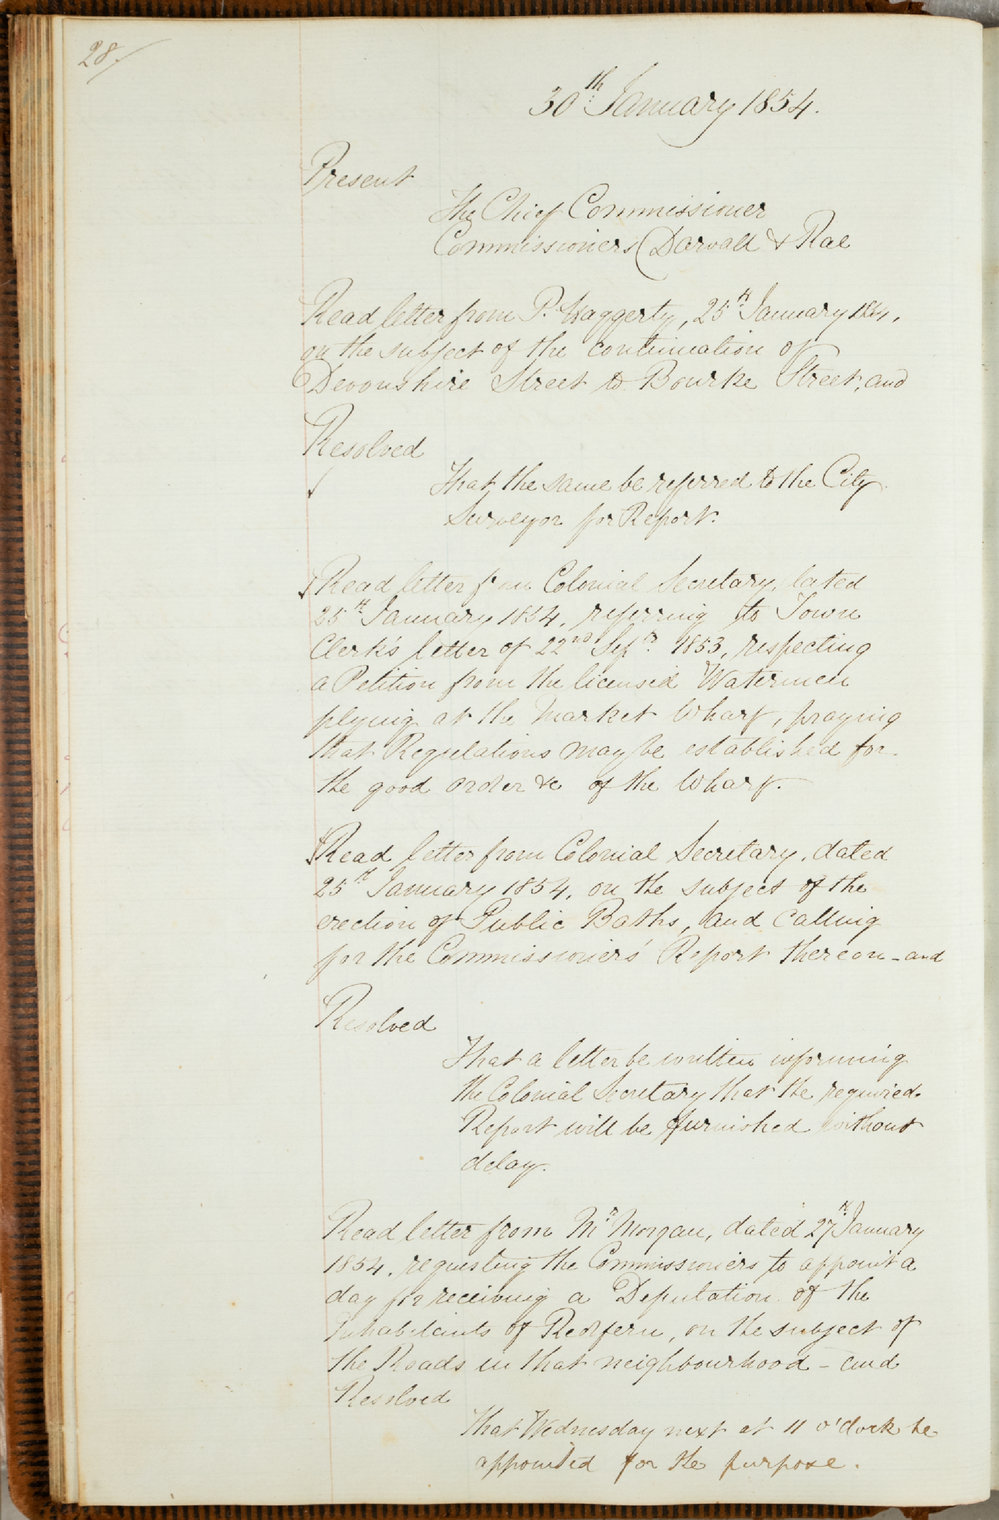 28/
30th January 1854.
Present
The Chief Commissioner
Commissioners Darvall & Rae
Read letter from P. Haggerty, 25th January 1854,
on the subject of the continuation of
Devonshire Street to Bourke Street, and
Resolved
That the same be referred to the City
Surveyor for Report.
Read letter from Colonial Secretary, dated
25th January 1854, referring to Town
Clerk's letter of 22nd Sepr. 1853, respecting
a Petition from the licensed Watermen
plying at the Market Wharf, praying
that Regulations may be established for
the good order &c of the Wharf.
Read letter from Colonial Secretary, dated
25th January 1854, on the subject of the
erection of Public Baths, and calling
for the Commissioners' Report thereon - and
Resolved
That a letter be written informing
the Colonial Secretary that the required
Report will be furnished without
delay.
Read letter from Mr Morgan, dated 27th January
1854, requesting the Commissioners to appoint a
day for receiving a Deputation of the
Inhabitants of Redfern, on the subject of
the Roads in that neighbourhood - and
Resolved
That Wednesday next at 11 o'clock be
appointed for the purpose.